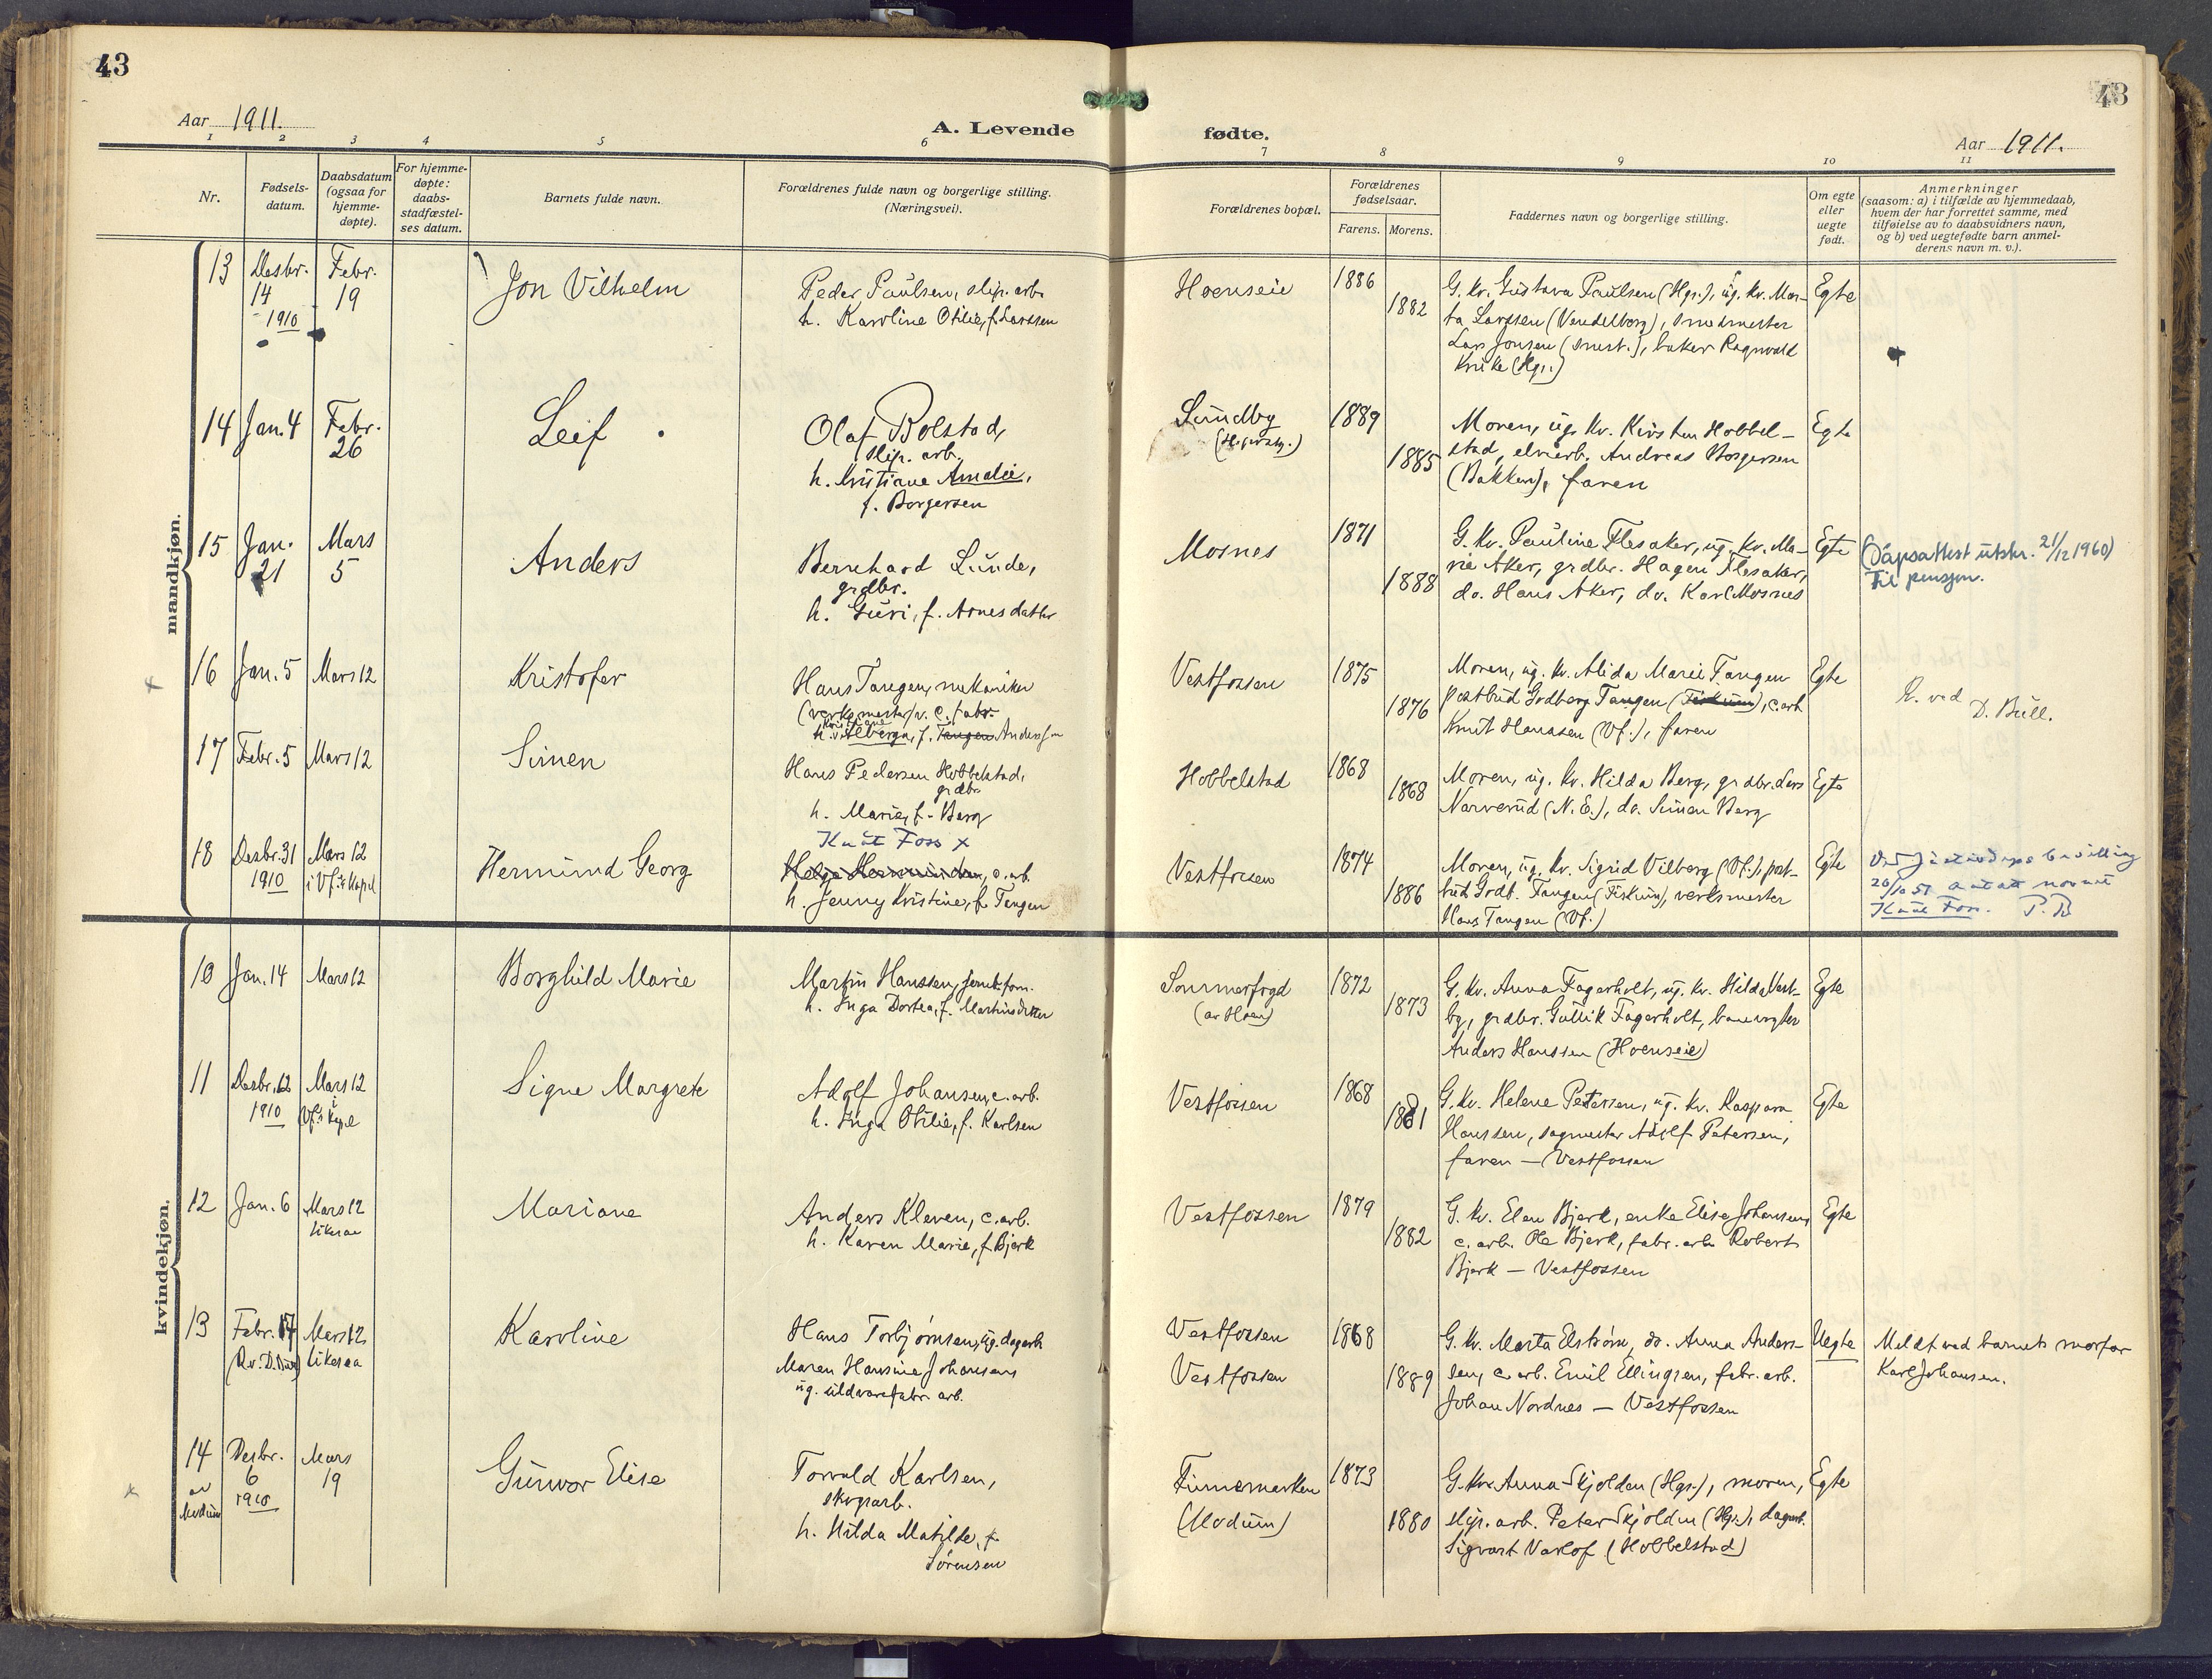 43
43
Aar 1911.
A. Levende
fødte.
Aar 1911.
1 2 3 4 5 6 7 8 9 10 11
Nr.
Fødsels-
datum.
Daabsdatum
(ogsaa for
hjemme-
døpte).
For hjemme-
døpte:
daabs-
stadfæstel-
ses datum.
Barnets fulde navn.
Forældrenes fulde navn og borgerlige stilling.
(Næringsvei).
Forældrenes bopæl.
Forældrenes
fødselsaar.
Farens. Morens.
Faddernes navn og borgerlige stilling.
Om egte
eller
uegte
født.
Anmerkninger
(saasom: a) i tilfælde av hjemmedaab,
hvem der har forrettet samme, med
tilføielse av to daabsvidners navn,
og b) ved uegtefødte barn anmel-
derens navn m. v.).
mandkjøn.
13
Desbr.
14
1910
Febr.
19
Jon Vilhelm
Peder Paulsen, slip. arb.
h. Karoline Otilie, f. Larssen
Hoenseie
1886
1882
G. kv. Gustava Paulsen (Hgs.), ug. kv. Mar-
ta Larssen (Vendelborg), smedmester
Lars Jonsen (smst.), baker Ragnvald
Krike (Hgs.)
Egte
14
Jan. 4
Febr.
26
Leif
Olaf Bolstad,
slip. arb.
h. Kristiane Amalie,
f. Borgersen
Sundby
1889
1885
Moren, ug. kv. Kirsten Hobbel-
stad, elvearb. Andreas Borgersen
(Bakken), faren
Egte
15
Jan.
21
Mars
5
Anders
Bernhard Lunde,
grdbr.
h. Guri, f. Arnesdatter
Mosnes
1871
1888
G. kv. Pauline Flesaker, ug. kv. Ma-
rie Aker, grdbr. Hagen Flesaker,
do. Hans Aker, do. Karl Mosnes
Egte
(Dåpsattest utskr. 21/12 1960)
til pensjon.
16
Jan. 5
Mars 12
Kristofer
Hans Tangen, mekaniker
(verksmester v. c. fabr.
h. Kristiane Vilberga, f. Tangen Anderssen
Vestfossen
1875
1876
Moren, ug. kv. Alida Marie Tangen
postbud Godberg Tangen (Fiskum), c. arb.
Knut Hanssen (Vf.), faren
Egte
R. ved D. Bull.
17
Febr. 5
Mars 12
Simen
Hans Pedersen Hobbelstad,
grdbr.
h. Marie, f. Berg
Hobbelstad
1868
1868
Moren, ug. kv. Hilda Berg, grdbr. Lars
Narverud (N. E.), do. Simen Berg
Egte
18
Desbr. 31
1910
Mars 12
i Vf.s kapel
Hermund Georg
Knut Foss x
Helge Hermundsen, c. arb.
h. Jenny Kristine, f. Tangen
Vestfossen
1874
1886
Moren, ug. kv. Sigrid Vilberg (Vf.), post-
bud Godb. Tangen (Fiskum), verksmester
Hans Tangen (Vf.)
Egte
Ved Justisdeps bevilling
20/10 51 antatt navnet
Knut Foss. P. B
kvindekjøn.
10
Jan. 14
Mars 12
Borghild Marie
Martin Hanssen, jernb. form.
h. Inga Dortea, f. Martinsdatter
Sommerfryd
(av Hoen)
1872
1873
G. kv. Anna Fagerholt, ug. kv. Hilda Vest-
by, grdbr. Gullik Fagerholt, banevogter
Anders Hanssen (Hoenseie)
Egte
11
Desbr. 12
1910
Mars 12
i
Vf.s kapel
Signe Margrete
Adolf Johansen, c. arb.
h. Inga Otilie, f. Karlsen
Vestfossen
1868
1881
G. kv. Helene Petersen, ug. kv. Kaspara
Hanssen, sagmester Adolf Petersen,
faren — Vestfossen
Egte
12
Jan. 6
Mars 12
likesaa
Mariane
Anders Kleven, c. arb.
h. Karen Marie, f. Bjerk
Vestfossen
1879
1882
G. kv. Elen Bjerk, enke Elise Johansen,
c. arb. Ole Bjerk, fabr. arb. Robert
Bjerk — Vestfossen
Egte
13
Febr. 17
Mars 12
likesaa
Karoline
Hans Torbjørnsen, ug. dagarb.
Maren Hansine Johansen
ug. uldvarefabr. arb.
Vestfossen
Vestfossen
1868
1889
G. kv. Marta Elstrøm, do. Anna Anders-
sen, c. arb. Emil Ellingsen, fabr. arb.
Johan Nordnes — Vestfossen
Uegte
Meldt ved barnets morfar
Karl Johansen.
14
av
Modum
Desbr.
6
1910
Mars
19
Gunvor Elise
Torvald Karlsen,
skogsarb.
h. Hilda Matilde, f.
Sørensen
Finnemarken
(Modum)
1873
1880
G. kv. Anna Skjolden (Hgs.), moren,
slip. arb. Peter Skjolden (Hgs.), dagarb.
Sigvart Varlof (Hobbelstad)
Egte